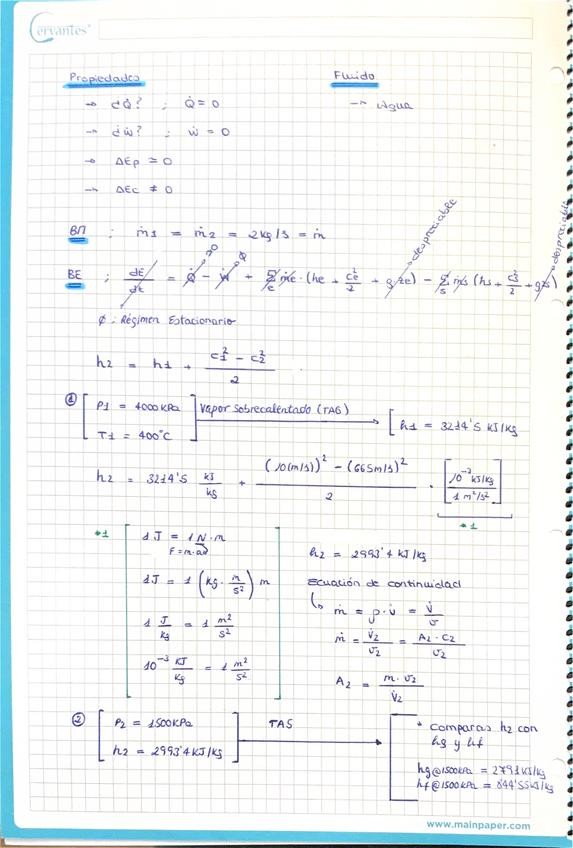 Cervantes
Propiedades Fluido
→ ¿Q̇? ; Q̇ = 0 → Agua
→ ¿Ẇ? ; Ẇ = 0
→ ΔEp ≃ 0
→ ΔEc ≠ 0
BM ; ṁ1 = ṁ2 = 2kg/s = ṁ
BE ; dE/dt = Q̇ - Ẇ + Σe ṁe · (he + ce²/2 + g·ze) - Σs ṁs (hs + cs²/2 + gzs)
0 0 despreciable despreciable
ϕ : Régimen Estacionario
h2 = h1 + (c1² - c2²)/2
① [ P1 = 4000kPa T1 = 400°C ] Vapor sobrecalentado (TAS) → [ h1 = 3214'5 kJ/kg
h2 = 3214'5 kJ/kg + ((10(m/s))² - (665m/s)²)/2 · [10⁻³ kJ/kg / 1 m²/s²]
*1
*1 [ 1J = 1N·m
F=m·a
1J = 1 (kg · m/s²) m
1 J/kg = 1 m²/s²
10⁻³ kJ/kg = 1 m²/s² ]
h2 = 2993'4 kJ/kg
Ecuación de continuidad
↳ ṁ = ρ·v̇ = V̇/v
ṁ = V̇2/v2 = A2·c2/v2
A2 = m·v2/V̇2
② [ P2 = 1500kPa h2 = 2993'4 kJ/kg ] TAS → [ * comparas h2 con
hg y hf
hg@1500kPa = 2791kJ/kg
hf@1500kPa = 844'55kJ/kg
www.mainpaper.com